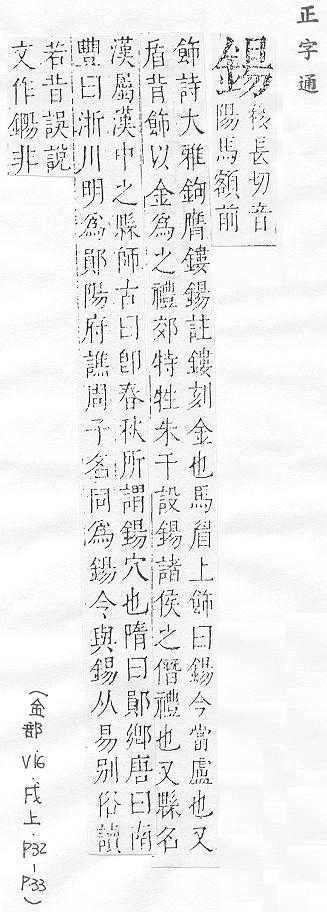 正字通
鍚
移長切音
陽馬額前
飾詩大雅鉤膺鏤鍚註鏤刻金也馬眉上飾曰鍚今當盧也又
盾背飾以金爲之禮郊特牲朱干設鍚諸侯之僭禮也又縣名
漢屬漢中之縣師古曰卽春秋所謂鍚穴也隋曰鄖鄉唐曰南
豐曰淅川明爲鄖陽府譙周子名同爲鍚令與錫从易別俗讀
若昔誤說
文作鐊非
(金部 V16.戌上.P32-P33)